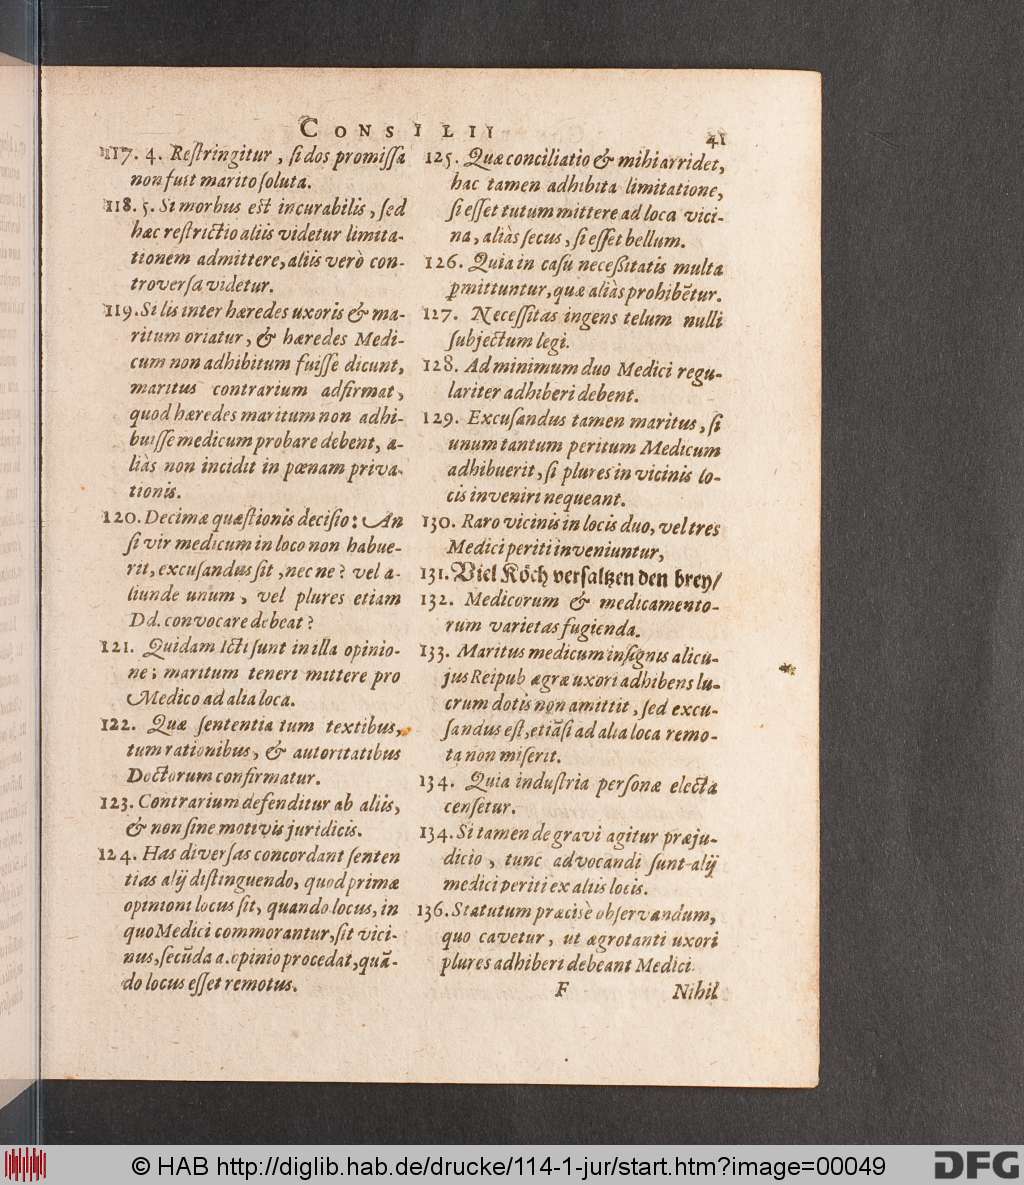 CONSILII
41
117. 4. Reſtringitur, ſi dos promiſſa
non fuit marito ſoluta.
118. 5. Si morbus eſt incurabilis, ſed
hæc reſtrictio aliis videtur limita-
tionem admittere, aliis verò con-
troverſa videtur.
119. Si lis inter hæredes uxoris & ma-
ritum oriatur, & hæredes Medi-
cum non adhibitum fuiſſe dicunt,
maritus contrarium adfirmat,
quod hæredes maritum non adhi-
buiſſe medicum probare debent, a-
liàs non incidit in pœnam priva-
tionis.
120. Decimæ quæſtionis deciſio: An
ſi vir medicum in loco non habue-
rit, excuſandus ſit, nec ne? vel a-
liunde unum, vel plures etiam
Dd. convocare debeat?
121. Quidam Icti ſunt in illa opinio-
ne; maritum teneri mittere pro
Medico ad alia loca.
122. Quæ ſententia tum textibus,
tum rationibus, & autoritatibus
Doctorum confirmatur.
123. Contrarium defenditur ab aliis,
& non ſine motivis juridicis.
124. Has diverſas concordant ſenten
tias alij diſtinguendo, quod primæ
opinioni locus ſit, quando locus, in
quo Medici commorantur, ſit vici-
nus, ſecũda a. opinio procedat, quã-
do locus eſſet remotus.
125. Quæ conciliatio & mihi arridet,
hac tamen adhibita limitatione,
ſi eſſet tutum mittere ad loca vici-
na, aliàs ſecus, ſi eſſet bellum.
126. Quia in caſu neceßitatis multa
ꝑmittuntur, quæ aliàs prohibẽtur.
127. Neceſſitas ingens telum nulli
ſubjectum legi.
128. Ad minimum duo Medici regu-
lariter adhiberi debent.
129. Excuſandus tamen maritus, ſi
unum tantum peritum Medicum
adhibuerit, ſi plures in vicinis lo-
cis inveniri nequeant.
130. Raro vicinis in locis duo, vel tres
Medici periti inveniuntur,
131. Viel Köch verſaltzen den brey/
132. Medicorum & medicamento-
rum varietas fugienda.
133. Maritus medicum inſignis alicu-
jus Reipub ægræ uxori adhibens lu-
crum dotis non amittit, ſed excu-
ſandus eſt, etiãſi ad alia loca remo-
ta non miſerit.
134. Quia induſtria perſonæ electa
cenſetur.
134. Si tamen de gravi agitur præju-
dicio, tunc advocandi ſunt alij
medici periti ex aliis locis.
136. Statutum præcisè obſervandum,
quo cavetur, ut ægrotanti uxori
plures adhiberi debeant Medici.
F
Nihil
© HAB http://diglib.hab.de/drucke/114-1-jur/start.htm?image=00049
DFG